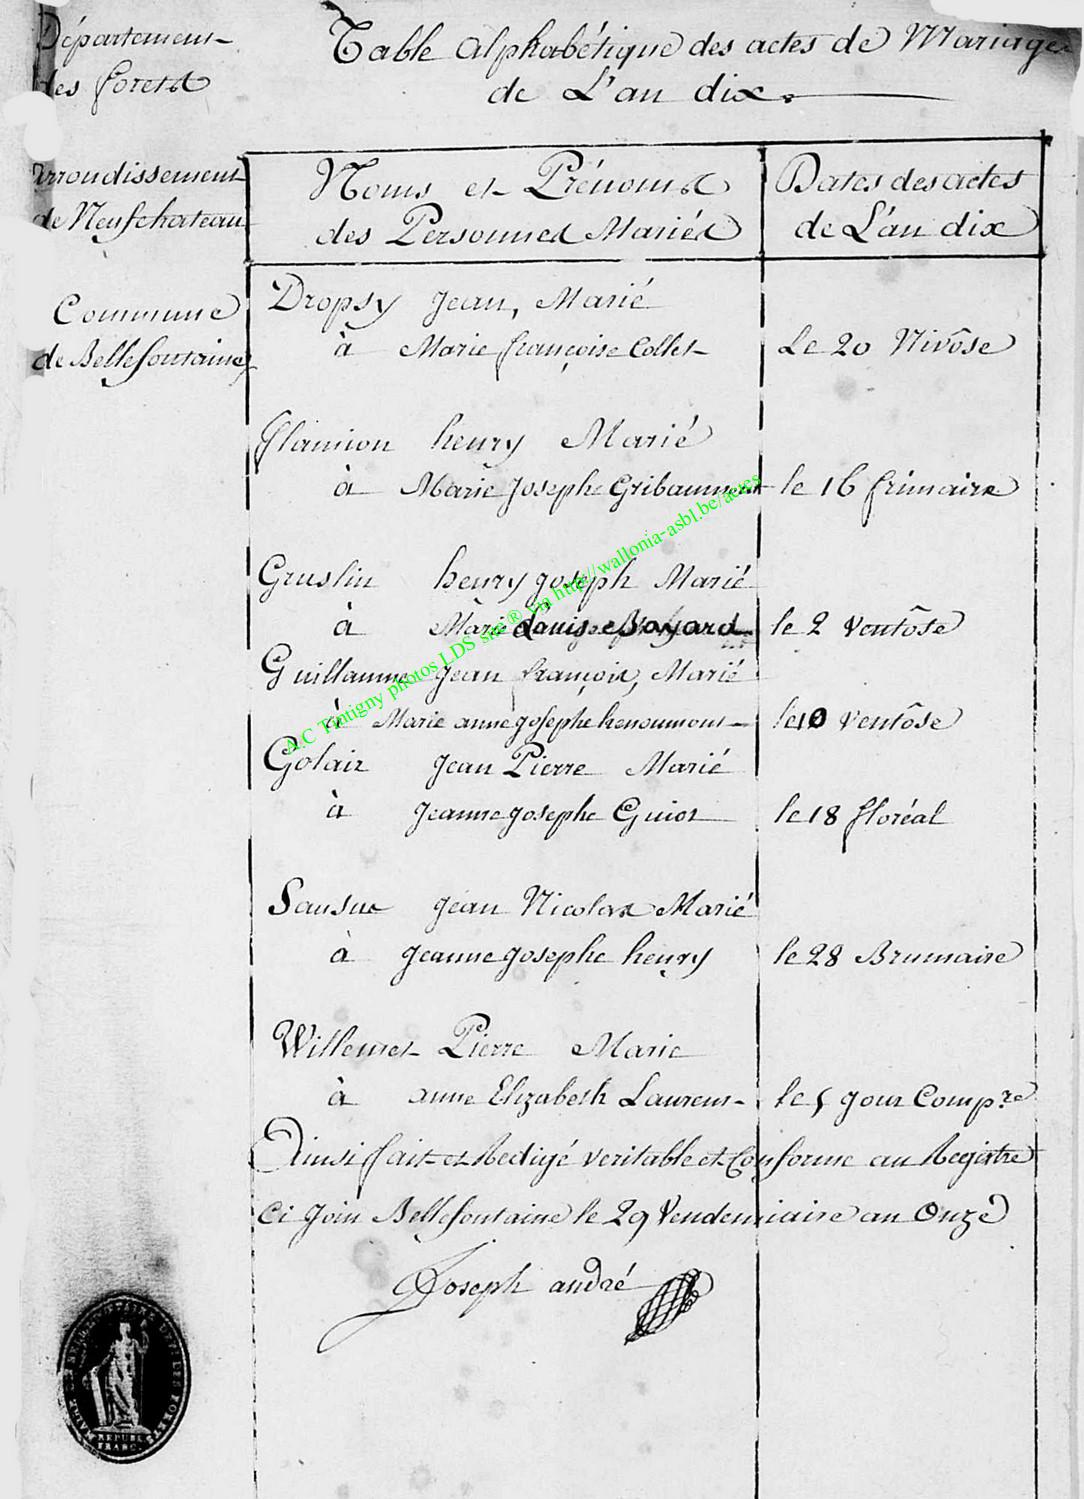 Département
des forets
Table alphabétique des actes de Mariage
de L'an dix.
arrondissement
de Neufchateau
Noms et Prénoms
des Personnes Mariés
Dates des actes
de L'an dix
Commune
de Bellefontaine
Dropsy Jean, Marié
à Marie françoise Collet
Le 20 Nivôse
flamion henry Marié
à Marie Joseph Gribaumont
le 16 frimaire
Gruslin henry joseph Marié
à Marie Louise Bayard
le 2 Ventôse
Guillaume Jean françois, Marié
à Marie anne josephe henoumont
le 10 Ventôse
Golair Jean Pierre Marié
à Jeanne josephe Guiot
le 18 floréal
Sansuc jean Nicolas Marié
à jeanne josephe henry
le 28 Brumaire
Willemet Pierre Marie
à anne Elizabeth Laurent
le 5 jour Comp.re
Ainsi fait et Redigé veritable et Conforme au Registre
Ci join Bellefontaine le 29 Vendemiaire an Onze
Joseph andré
MAIRIE DE BELLEFONTAINE DEPT. DES FORETS
REPUBL.
FRANC.
A.C Tintigny photos LDS site® via http://wallonia-asbl.be/actes